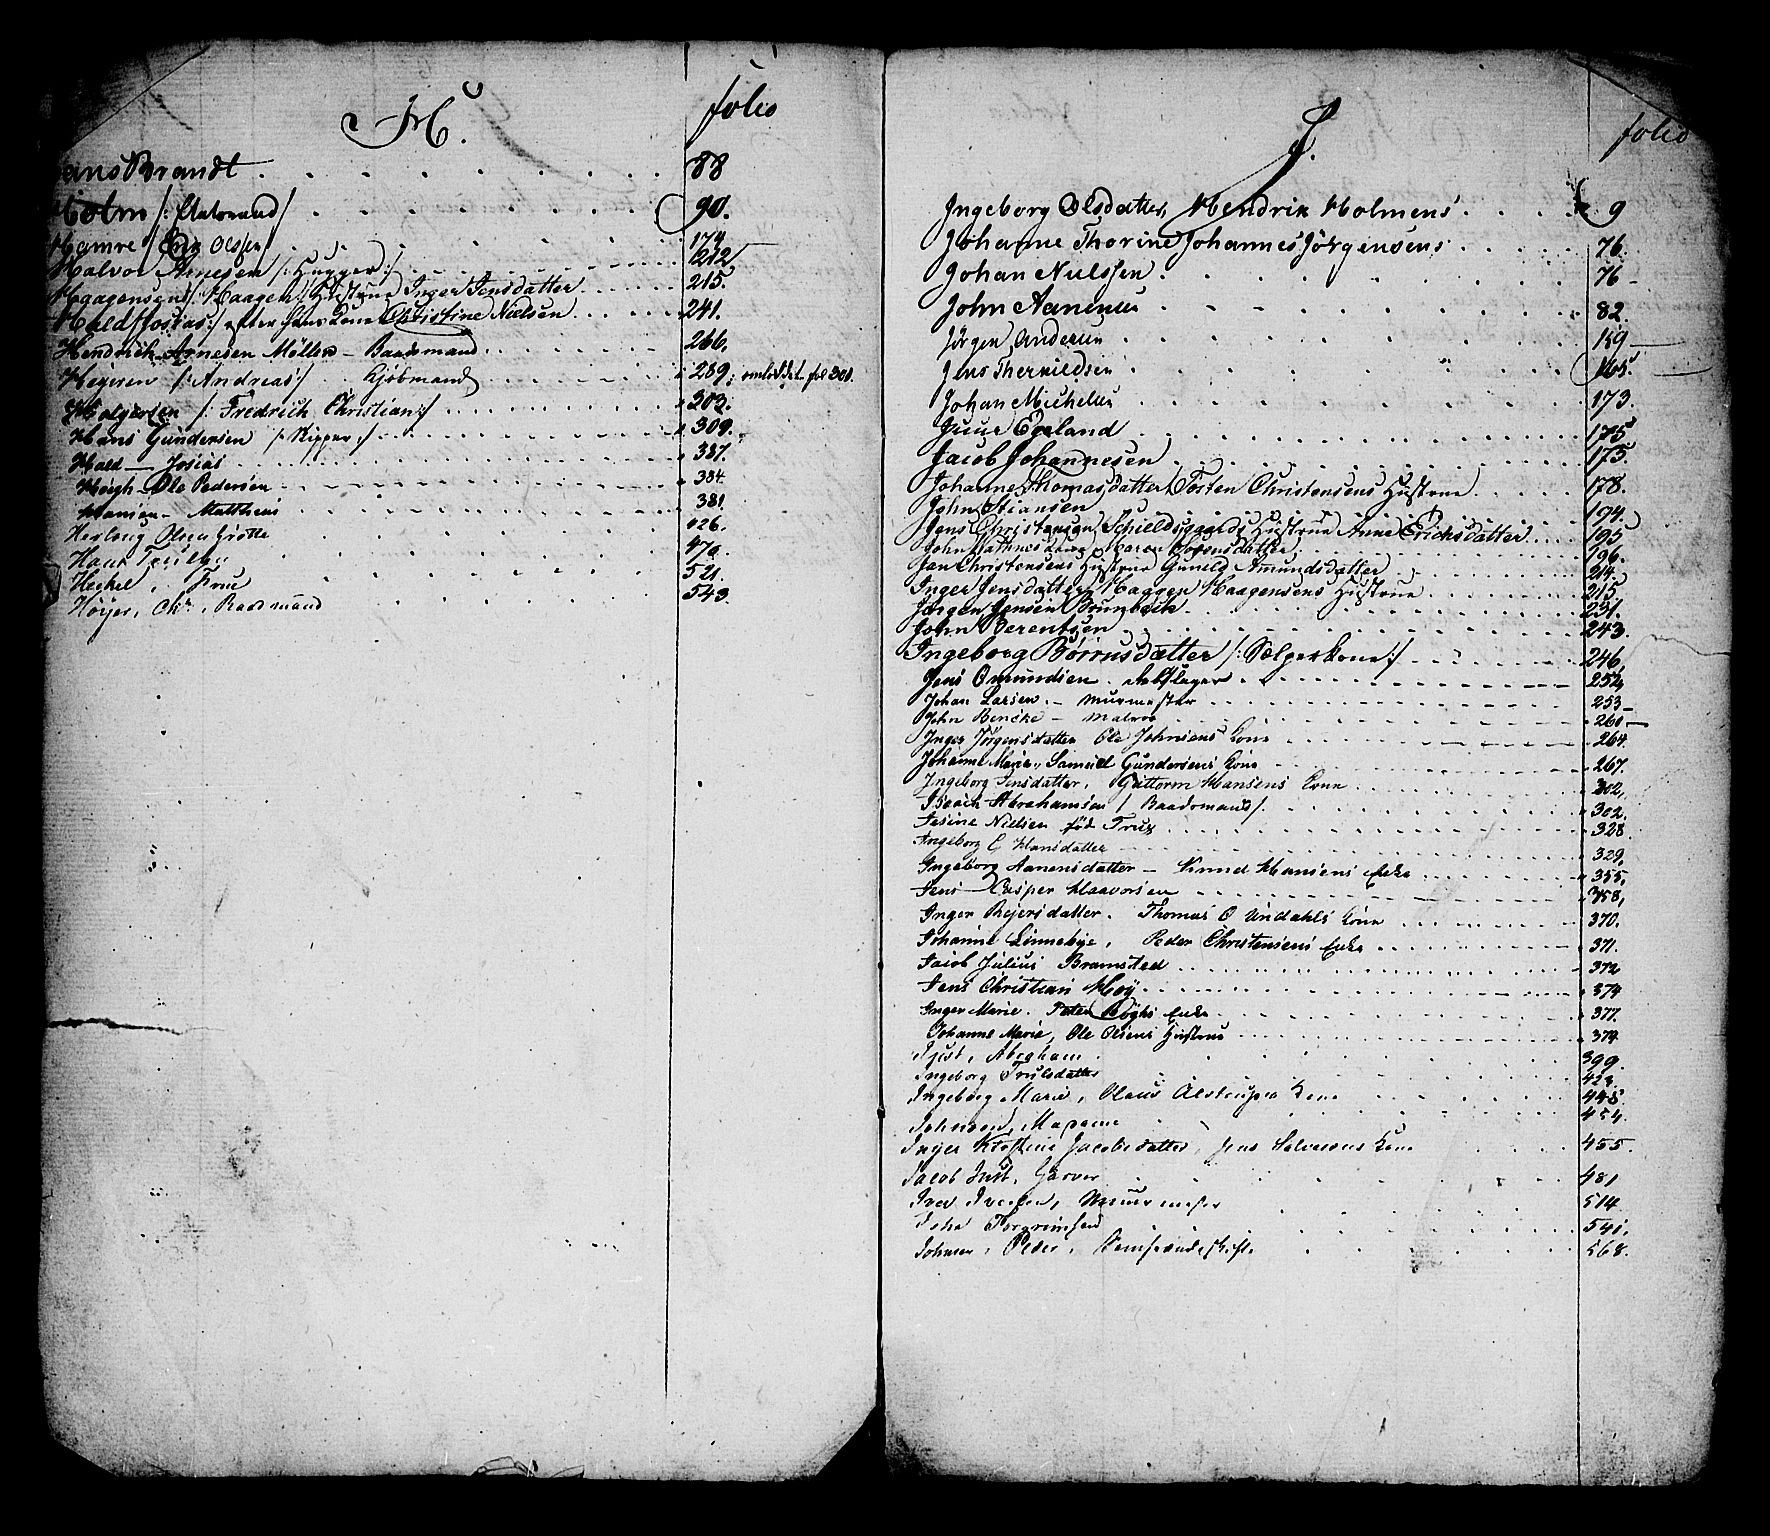 H. folio
Hans Brandt 88
Holm 90.
Hamre /Erik Olssen 174
Halvor Arnesen /:Hugger:/ 212
Haagensens /:Haagen:/ Hustrue Inger Jensdatter 215.
Hald /Josias:/ efter hans Kone Christine Nielsen 241.
Hendrich Arnesen Möller - Baadsmand 266.
/:Andreas/ Kjöbmand 289. omloddet fol 301.
Holgersen /:Fredrich Christian:/ 303.
Hans Gundersen /:Skipper:/ 309.
Hald - Josias 387.
Høegh - Ole Pedersen 384.
Hansen - Matthias 381.
Grøtte 426.
Hans 479.
Heckel, Frue 521.
Höyer, Chr., Baadsmand 543.
I. folio
Ingeborg Olsdatter, Hendrik Holmens 9
Johanne Thorine Johannes Jörgensens 76.
Johan Nielssen 76
John Aanensen 82.
Jörgen Andersen 159
Jens Therkildsen 165.
Johan Michelsen 173.
Juur Egeland 175
Jacob Johannesen 175.
Johanne Thomasdatter Torsten Christensens Hustrue 178.
John Stiansen 194.
Jens Christensen Schieldsgaards Hustrue Anne Erichsdatter 195
John Maren Sörensdatter 196.
Jan Christensens Hustrue Guneld Amundsdatter 214.
Inger Jensdatter, Haagen Haagensens Hustrue 215
Jörgen Jensen Brunbech 231.
John Berentsen 243.
Ingeborg Börrusdatter /:Sælgerkone:/ 246,
Jens Omundsen 252,
Johan Larsen - Murmester 253
John Bencke - Matros 260
Inger Jörgensdatter Ole Johnsens Kone 264.
Johanne Marie, Samuel Gundersens Kone 267.
Ingeborg Jensdatter, Guttorm Hansens Kone 302,
Isaach Abrahamsen /Baadsmand/ 302.
Jesine Nielsen fød Trux 328
Ingeborg G Hansdatter 329,
Ingeborg Aanensdatter - Knud Hansens Enke 355,
Jens Casper Haavorsen 358,
Inger Reiersdatter. Thomas O Undahls Kone 370.
Johanne Linnebye, Peder Christensens Enke 371.
Jacob Julius Bramsted 372
Jens Christian Höy 374
Inger Marie. Peter Høghs Enke 377.
Johanne Marie, Ole Olsens Hustrue 379
Just, Abraham 399.
Ingeborg Trulsdatter 423.
Ingeborg Marie, Olaus Alstrups Kone 448.
Johnsen, Madame 454.
Inger Kirstine Jacobsdatter, Jens Halvorsens Kone 455.
Jacob Just, Garver 481
Iver Iversen, Muurmester 514
John Torgrimsen 541.
Johnsen, Peder, 568.